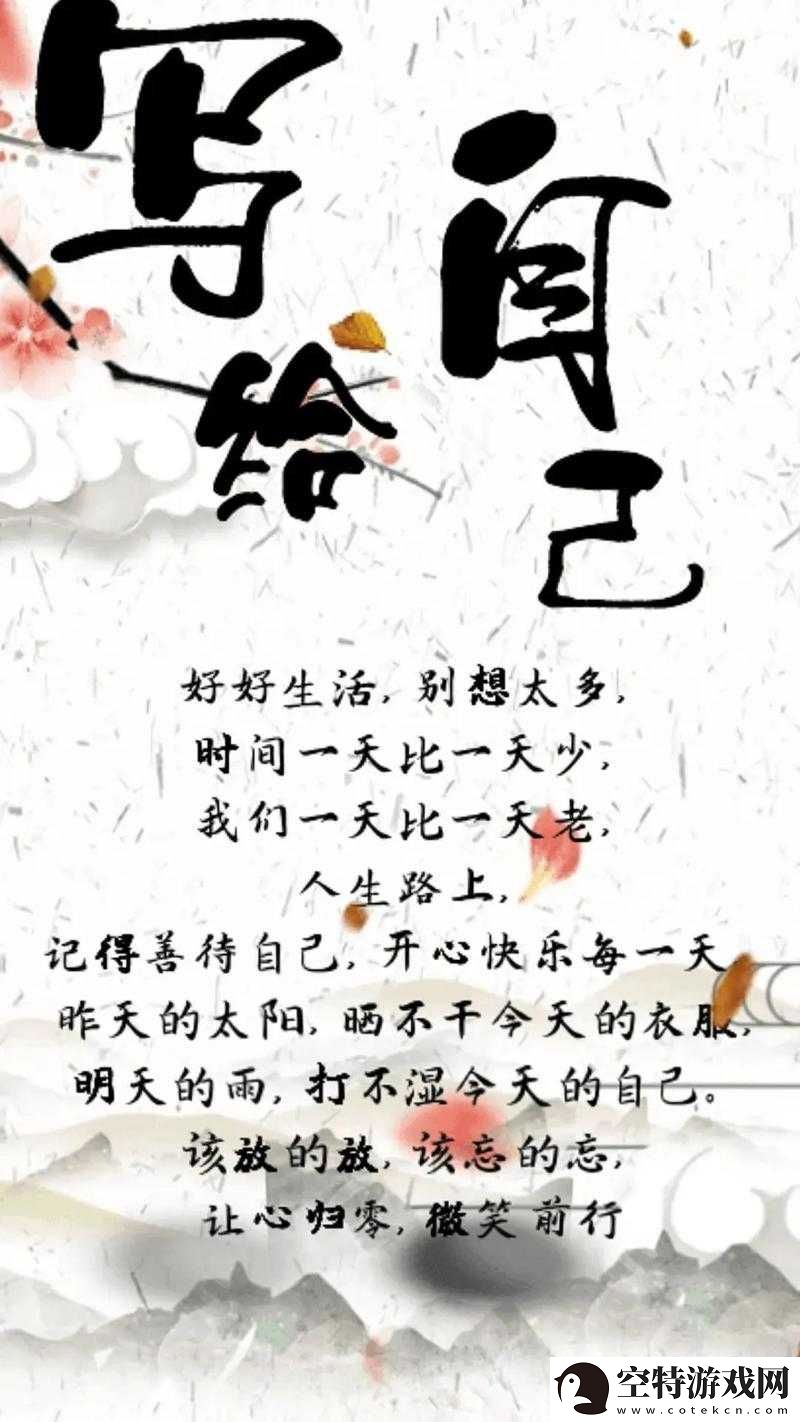 写给
自己
好好生活，别想太多，
时间一天比一天少，
我们一天比一天老，
人生路上，
记得善待自己，开心快乐每一天
昨天的太阳，晒不干今天的衣服，
明天的雨，打不湿今天的自己。
该放的放，该忘的忘，
让心归零，微笑前行
空特游戏网
www.cotekcn.com